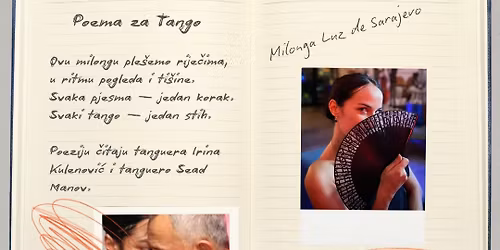 Poema za tango
Ovu milongu plešemo riječima,
u ritmu pogleda i tišine.
Svaka pjesma — jedan korak.
Svaki tango — jedan stih.
Poeziju čitaju tanguera Irina
Kulenović i tanguero Sead
Manov.
Milonga Luz de Sarajevo